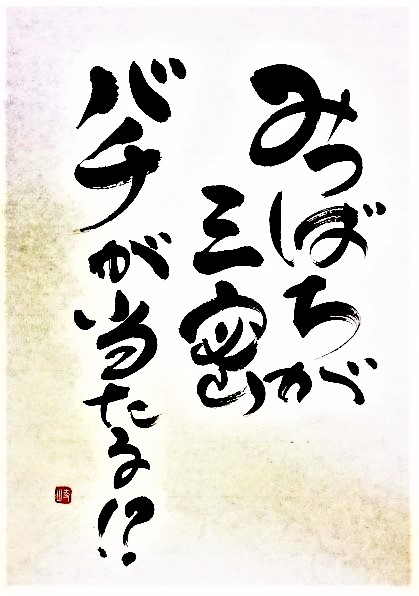 みつばちが
三密
バチが当たる!?